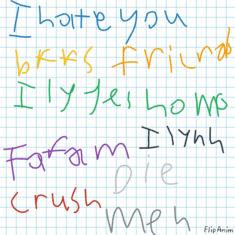 I hate you
bffs friends
Ilyyeshomo
Ilynh
Fafam
Die
crush
Meh
FlipAnim